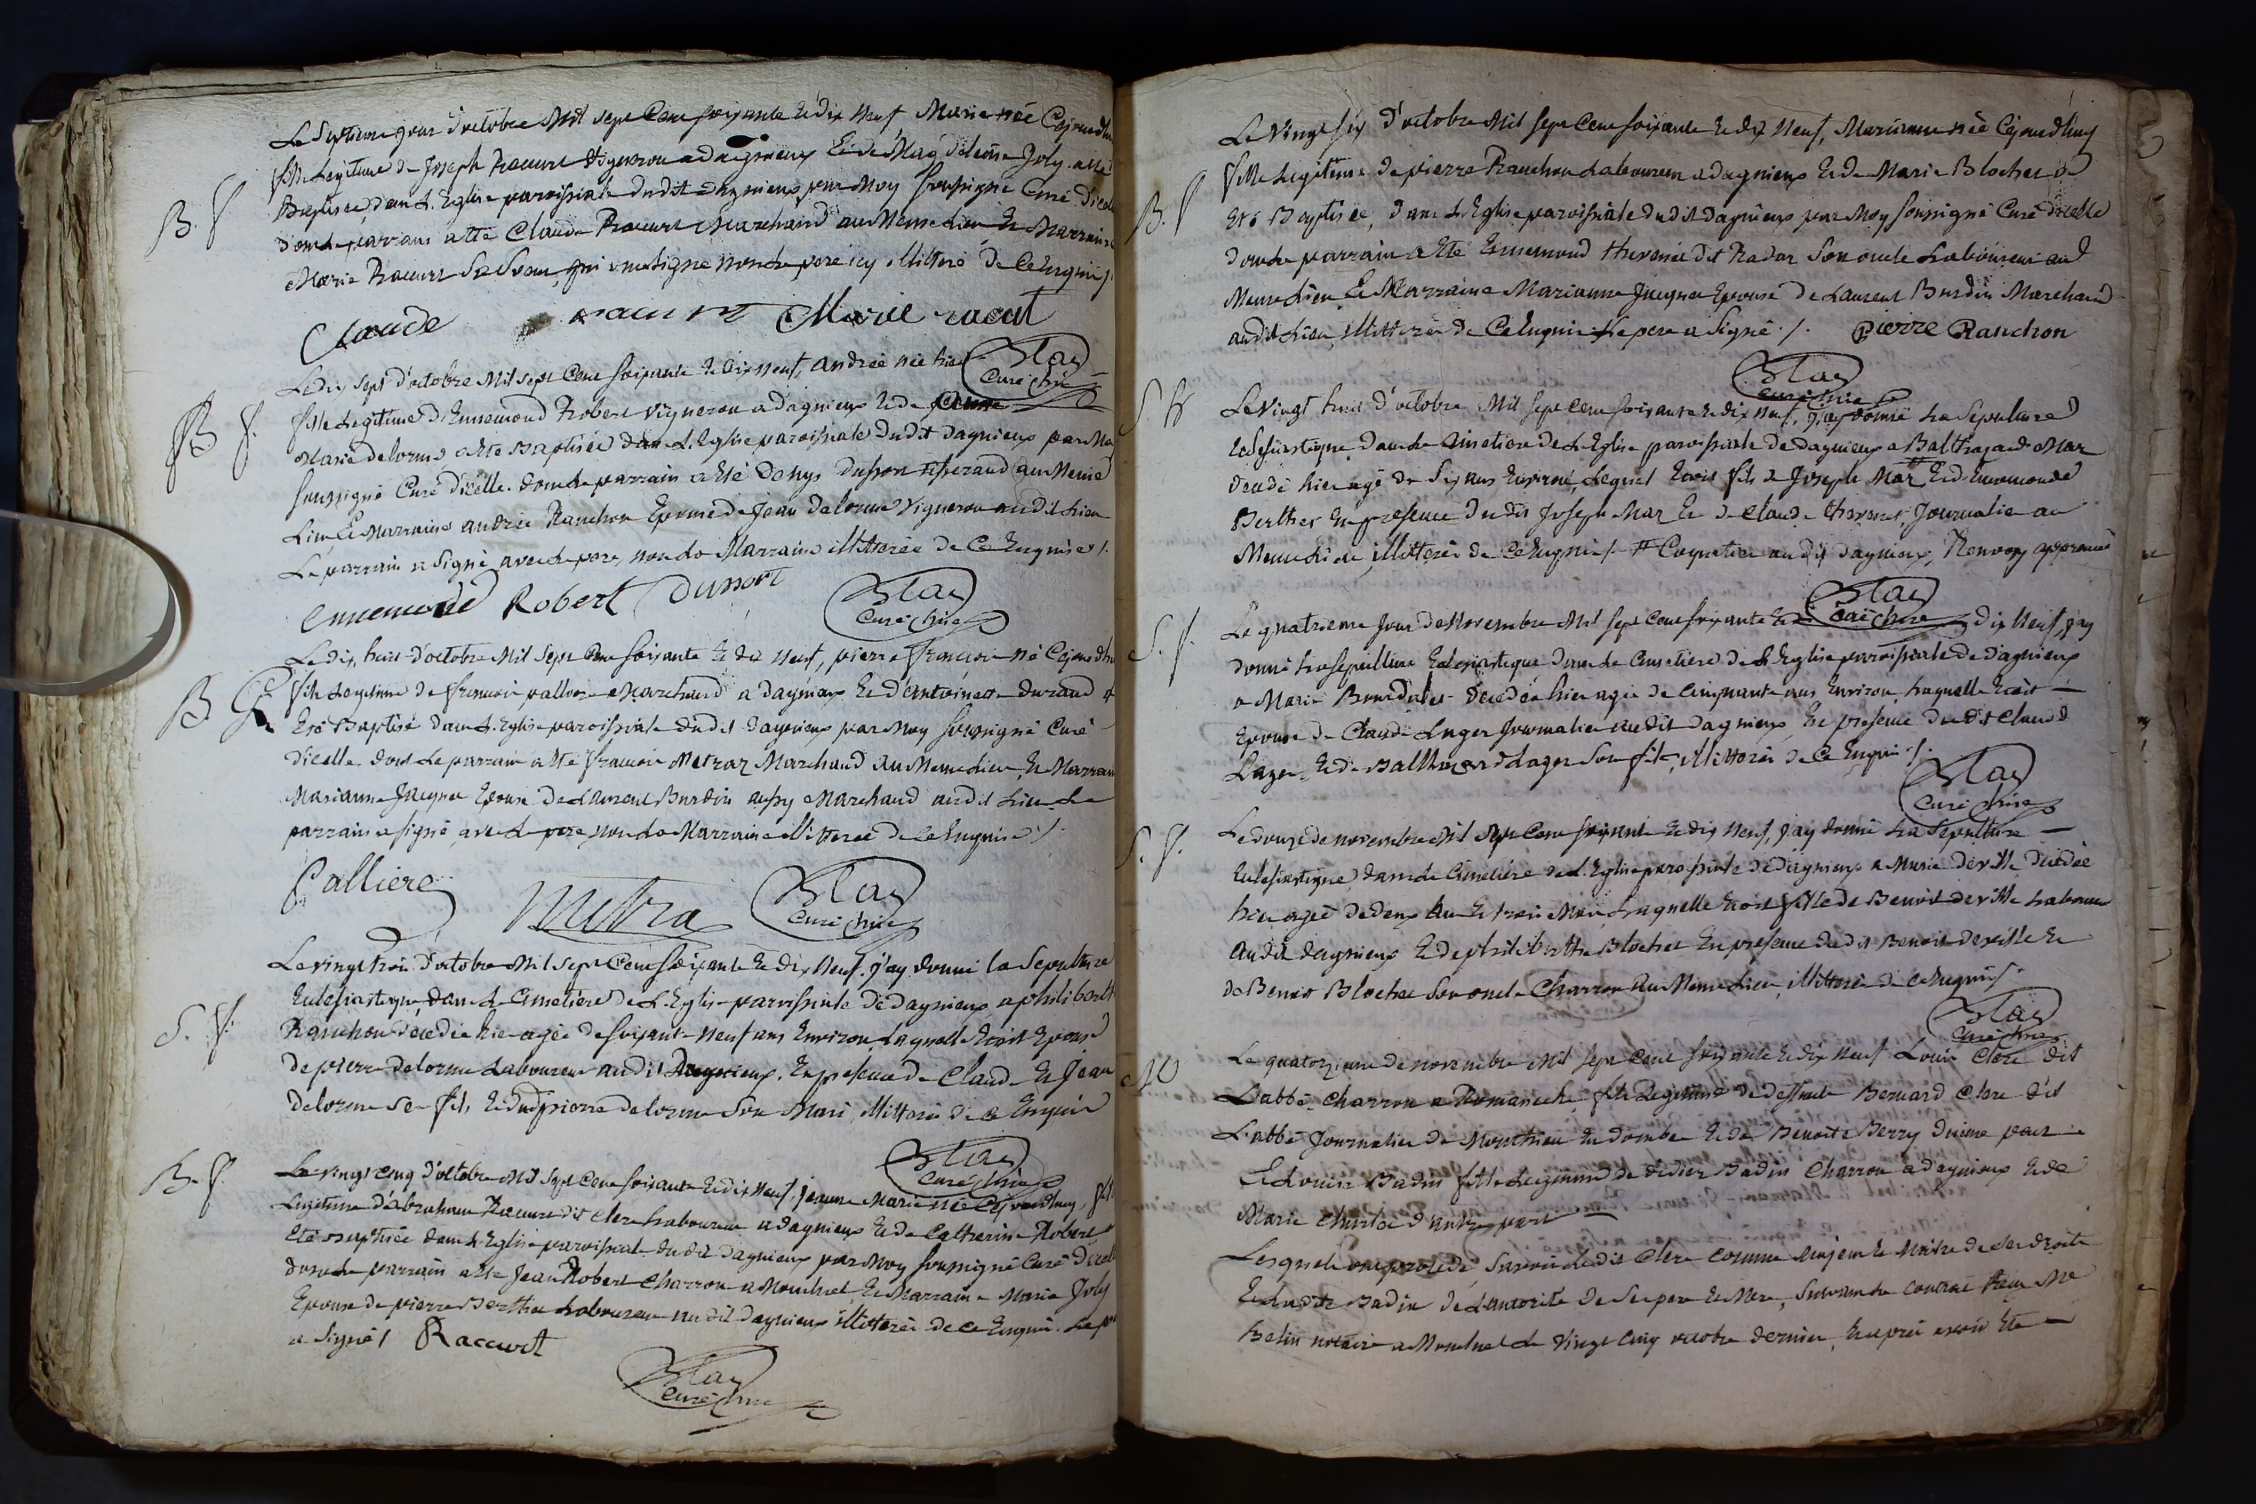 Le Septieme jour d'octobre Mil sept Cent soixante et dix neuf Marie née Cejourdhuy
fille Legitime de Joseph Racurt Vigneron a dagnieux Et de Joly a eté
B. f
Baptisée dans L'Eglise paroissiale dudit dagnieux par Moy soussigné Curé d'icelle
dont le parrain a eté Claude Racurt Marchand au Meme Lieu Et Marraine
Marie Racurt Sa Soeur, qui ont signé non le pere icy illitteré de Ce Enquis /.
Claude racurt Marie racurt
Blay
Curé
Le dix sept d'octobre Mil sept Cent soixante et dix neuf, andrée née hier
B f.
fille Legitime d'Ennemond Robert vigneron a dagnieux Et de
Marie delorme a eté Baptisée dans L'Eglise paroissiale dudit dagnieux par Moy
soussigné Curé d'icelle. dont le parrain a eté Denys dupont au Meme
Lieu Et Marraine andrée Ranchon Epouse de Jean delorme Vigneron audit Lieu
Le parrain a signé avec le pere, non la Marraine illitterée de Ce Enquise /.
ennemond Robert Dupont Blay
Curé
Le dix huit d'octobre Mil sept Cent soixante et dix neuf, pierre françois né Cejourdhuy
B. f.
fils Legitime de françois palliere Marchand a dagnieux Et d'antoinette durand a
Eté Baptisé dans L'Eglise paroissiale dudit dagnieux par Moy soussigné Curé
d'icelle. dont Le parrain a eté françois Metraz Marchand au Meme Lieu, Et Marraine
Marianne Jacquet Epouse de Laurent Burdin aussy Marchand audit Lieu. Le
parrain a signé avec le pere, non la Marraine illitterée de Ce Enquise /.
Palliere Metra Blay
Curé
Le vingt trois d'octobre Mil sept Cent soixante et dix neuf, j'ay donné la Sepulture
Eclesiastique, dans Le Cimetiere de L'Eglise paroissiale de dagnieux a philiberte
S. f.
Ranchon decedée hier agée de soixante neuf ans Environ, Laquelle Etoit Epouse
de pierre delorme Laboureur audit dagnieux, En presence de Claude Et Jean
delorme Ses fils, Et dudit pierre delorme Son Mari, illitterés de Ce Enquis
Blay
Curé
B. f.
Le vingt cinq d'octobre Mil sept Cent soixante et dix neuf, jeanne Marie née Cejourdhuy, fille
Legitime d'abraham Racurt dit clerc Laboureur a dagnieux Et de Catherine Robert, a
eté Baptisée dans L'Eglise paroissiale dudit dagnieux par Moy soussigné Curé d'icelle
dont le parrain a eté Jean Robert Charron a Montluel, Et Marraine Marie Joly
Epouse de pierre Berthe Laboureur audit dagnieux illitterés de Ce Enquis. Le pere
a signé / Raccurt
Blay
Curé
Le vingt six d'octobre Mil sept Cent soixante Et dix neuf, Marianne née Cejourdhuy
fille Legitime de pierre Ranchon Laboureur a dagnieux Et de Marie Blochet a
B. f
Eté Baptisée, dans L'Eglise paroissiale dudit dagnieux par Moy soussigné Curé d'icelle
dont le parrain a eté Ennemond thevenet dit Radar Son oncle Laboureur au
Meme Lieu Et Marraine Marianne Jacquet Epouse de Laurent Burdin Marchand
audit Lieu, illitterés de Ce Enquis Le pere a signé /. pierre Ranchon
Blay
Curé
Le vingt huit d'octobre Mil sept Cent soixante et dix neuf, j'ay donné La Sepulture
Eclesiastique dans Le Cimetiere de L'Eglise paroissiale de dagnieux a Balthazard Mar
decedé hier agé de six ans Environ, Lequel Etoit fils de Joseph Mar # Et d'Ennemonde
Berthet En presence dudit Joseph Mar Et de Claude thevenet, Journalier au
Meme Lieu illitterés de Ce Enquis /. # audit dagnieux, Renvoy approuvé
Blay
Curé
S. f.
Le quatrieme jour de Novembre Mil sept Cent soixante et dix neuf, j'ay
donné La Sepulture Eclesiastique dans Le Cimetiere de L'Eglise paroissiale de dagnieux
a Marie decedée hier agée de Cinquante ans Environ, Laquelle Etoit
Epouse de Claude Lager Journalier audit dagnieux, En presence dudit Claude
Lager, Et de Balthazard Lager Son fils, illitterés de Ce Enquis /.
Blay
Curé
S. f.
Le douze de novembre Mil sept Cent soixante et dix neuf, j'ay donné La Sepulture
Eclesiastique, dans Le Cimetiere de L'Eglise paroissiale de dagnieux a Marie deville decedée
hier agée de deux ans Et trois Mois, Laquelle Etoit fille de Benoit deville Laboureur
audit dagnieux Et de philiberthe Blochet En presence dudit Benoit deville Et
de Benoit Blochet Son oncle Charron au Meme Lieu, illitterés de Ce Enquis /.
Blay
Curé
M
Le quatorzieme de novembre Mil sept Cent soixante et dix neuf Louis Clerc dit
Labbé Charron a Romaneche, fils Legitime de deffunt Bernard Clerc dit
Labbé Journalier de Monthieu En dombe Et de Benoite Berry d'une part
Et Louise Badin fille Legitime de didier Badin Charron a dagnieux Et de
Marie d'autre part
Lesquels ont procedé, Savoir Ledit Clerc comme Majeur Et Maitre de Ses droits
Et Ladite Badin de L'autorité de Ses pere Et Mere, suivant Le Contrat Recu Me
Belin notaire a Montluel Le Vingt Cinq octobre dernier, Et apres avoir Eté